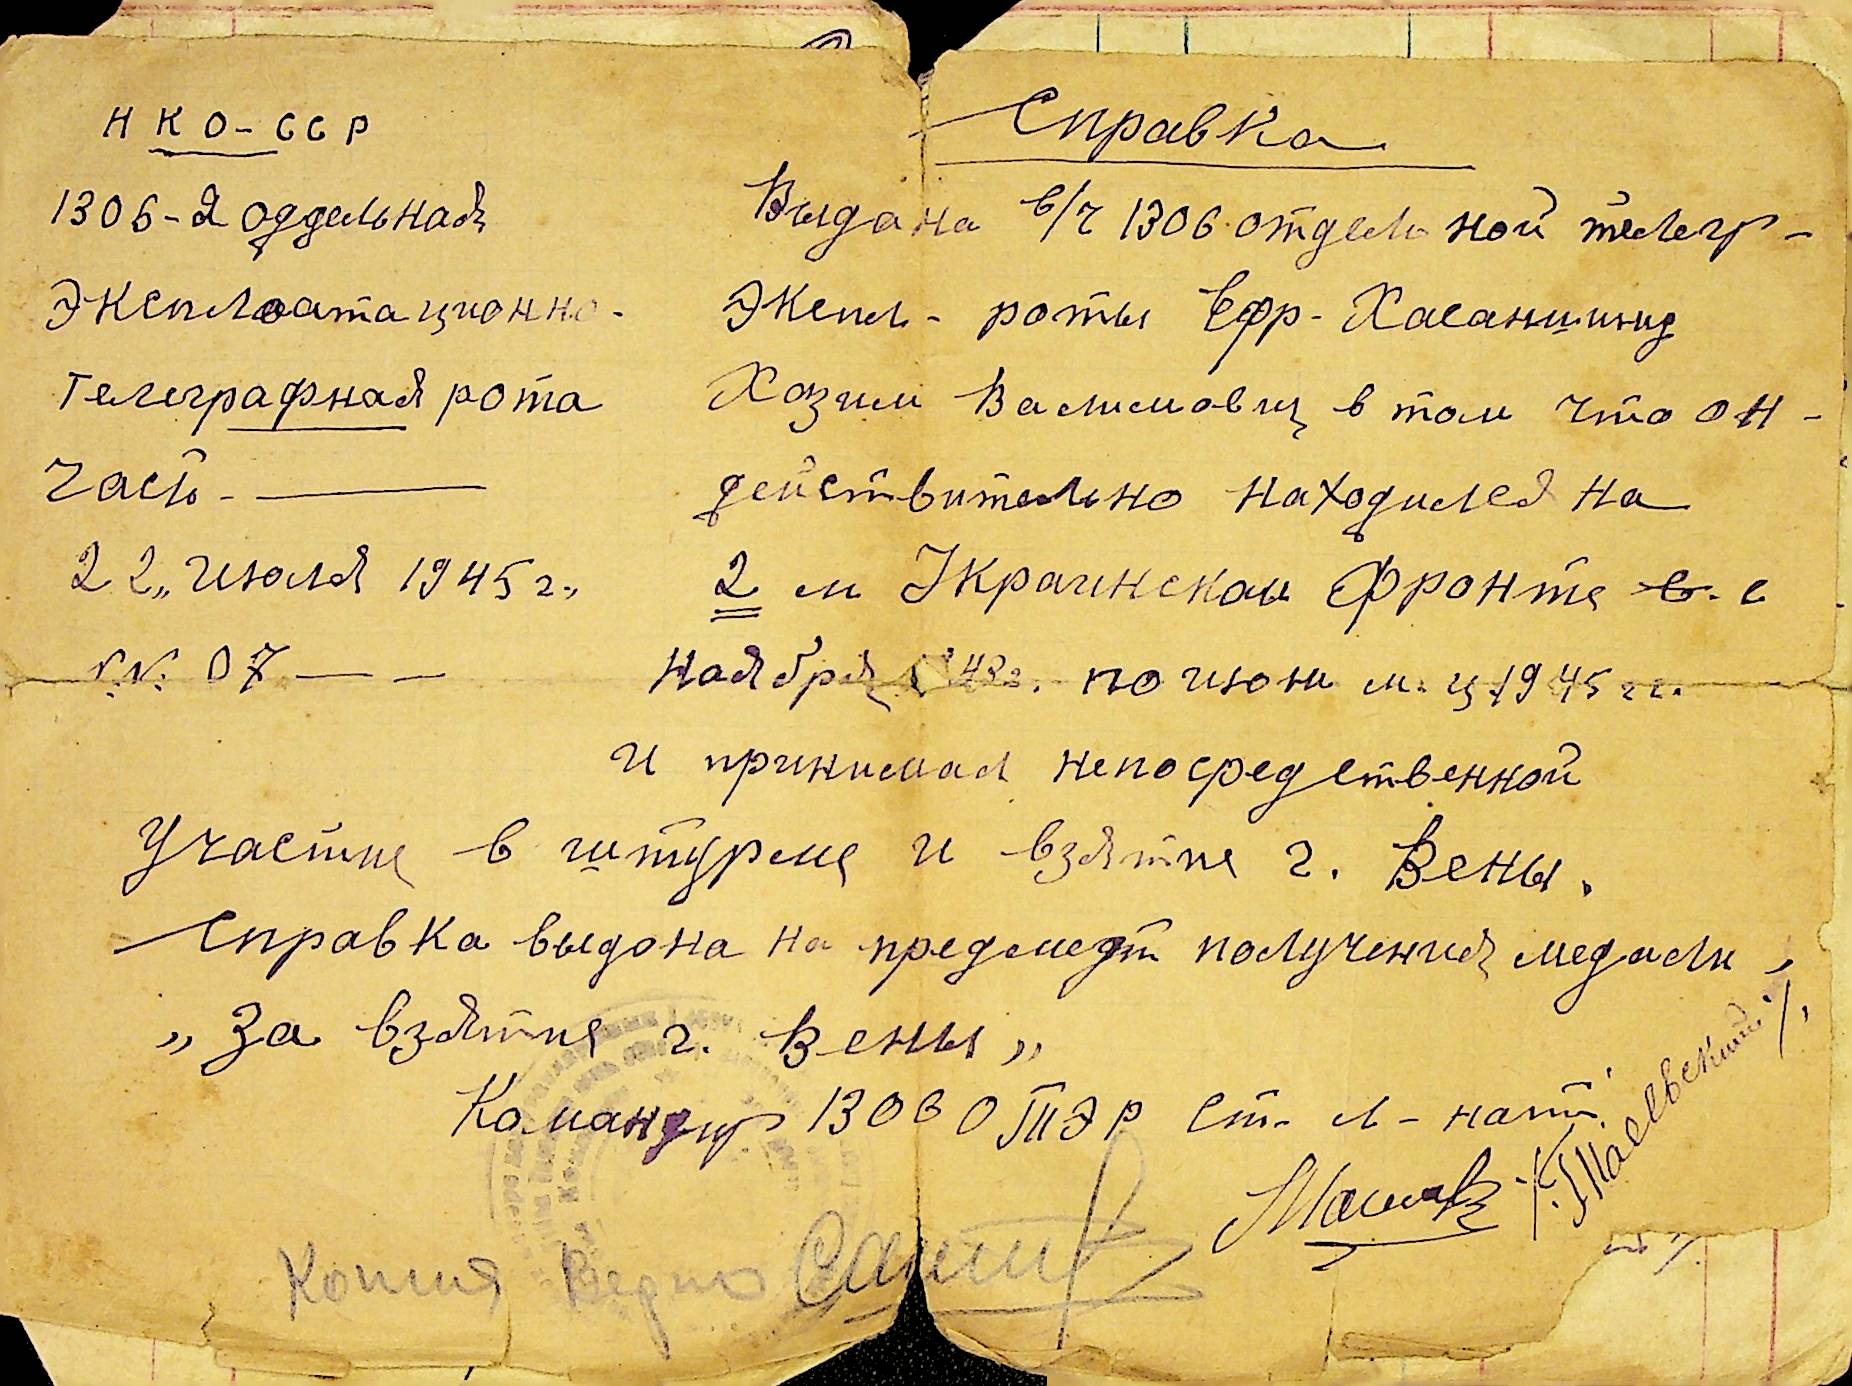 НКО-ССР
1306-я оддельная
Эксплоатационно-
Телеграфная рота
Часть -
22„ июля 1945 г.,
№ 07
Справка
Выдана в/ч 1306 отдельной телегр-
Экспл- роты Ефр-
Хазим в том что он-
действительно находился на
2 м Украинском Фронте с
Наября 43г. по июн м-ц 1945 гг.
и принимал непосредственной
Участие в штурме и взятие г. Вены.
Справка выдона на предмедт получения медали,
„За взятие г. Вены„
Командир 1306 ОТЭР Ст- л-нат
Копия Верно